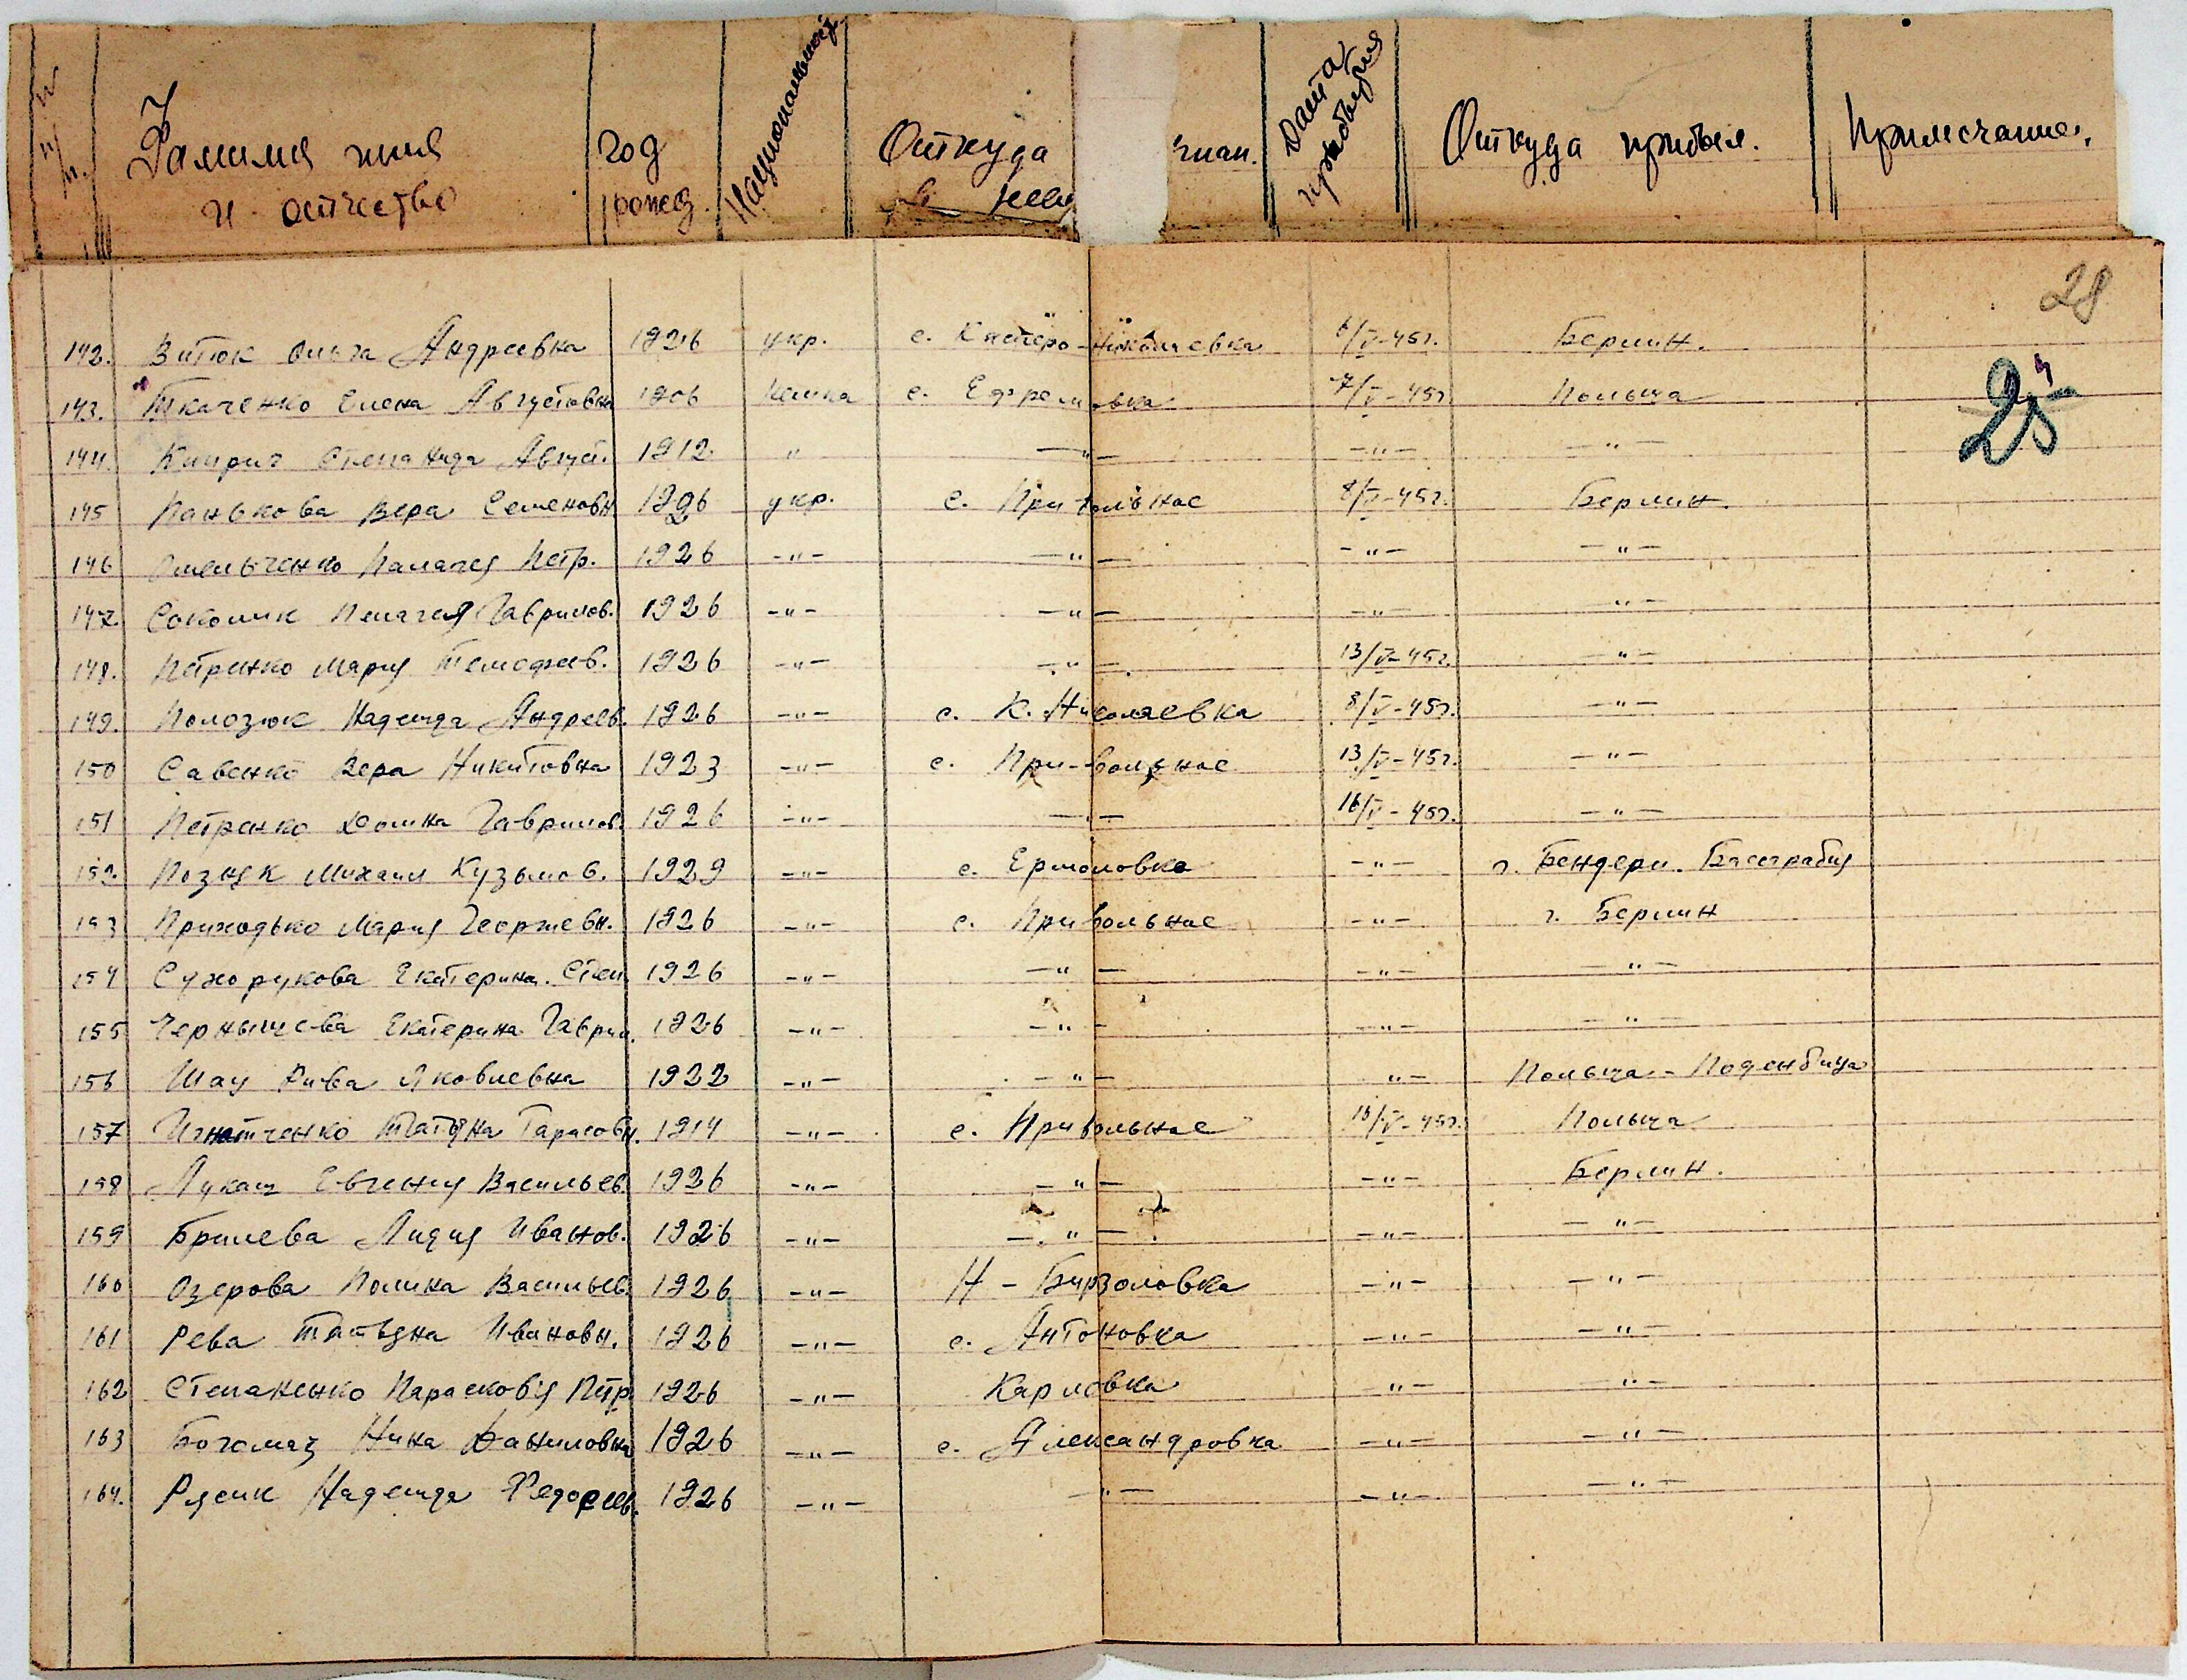 п/п. Фамилия имя и отчество Год рожд. Национальность Откуда Дата прибытия Откуда прибыл. Примечание.
28
142. Витюк Ольга Андреевна 1926 укр. с. Кантеро-Николаевка 6/V-45г. Берлин.
25
143. Ткаченко Елена Августовна 1906 немка с. Ефремовка 7/V-45г Польша
144. Августа. 1912 " —"— —"— —"—
145 Панькова Вера Семеновн 1926 укр. с. Привольное 8/V-45г. Берлин.
146 Омельченко Палагея Петр. 1926 —"— —"— —"— —"—
147. Соколик Пелагея Гаврилов. 1926 —"— —"— —"— —"—
148. Петренко Мария Тимофеев. 1926 —"— —"— 13/V-45г. —"—
149. Полозюк Надежда Андреев. 1926 —"— с. К. Николаевка 8/V-45г. —"—
150 Савенко Вера Никитовна 1923 —"— с. При-вольное 13/V-45г. —"—
151 Петренко Домна Гаврилов. 1926 —"— —"— 16/V-45г. —"—
152. Позняк Михаил Кузьмов. 1929 —"— с. Ермоловка —"— г. Бендери. Бассарабия
153 Приходько Мария Георгиевн. 1926 —"— с. Привольное —"— г. Берлин
154 Сухорукова Екатерина. Степ 1926 —"— —"— —"— —"—
155 Чернышева Екатерина Гаврил. 1926 —"— —"— —"— —"—
156 Шац Рива Яковлевна 1922 —"— —"— "— Польша - Поденбица
157 Игнатченко Татяна Тарасовн. 1914 —"— с. Привольное 16/V-45г. Польша
158 Лукаш Евгения Васильев. 1926 —"— —"— —"— Берлин.
159 Брилева Лидия Иванов. 1926 —"— —"— —"— —"—
160 Озерова Полина Васильев. 1926 —"— Н - Бирзоловка —"— —"—
161 Рева Татьяна Ивановн. 1926 —"— с. Антоновка —"— —"—
162 Степаненко Парасковия Петр 1926 —"— Карловка —"— —"—
163 Богомаз Нина Даниловна 1926 —"— с. Александровка —"— —"—
164. Рясик Надежда Федореев. 1926 —"— "— —"— —"—